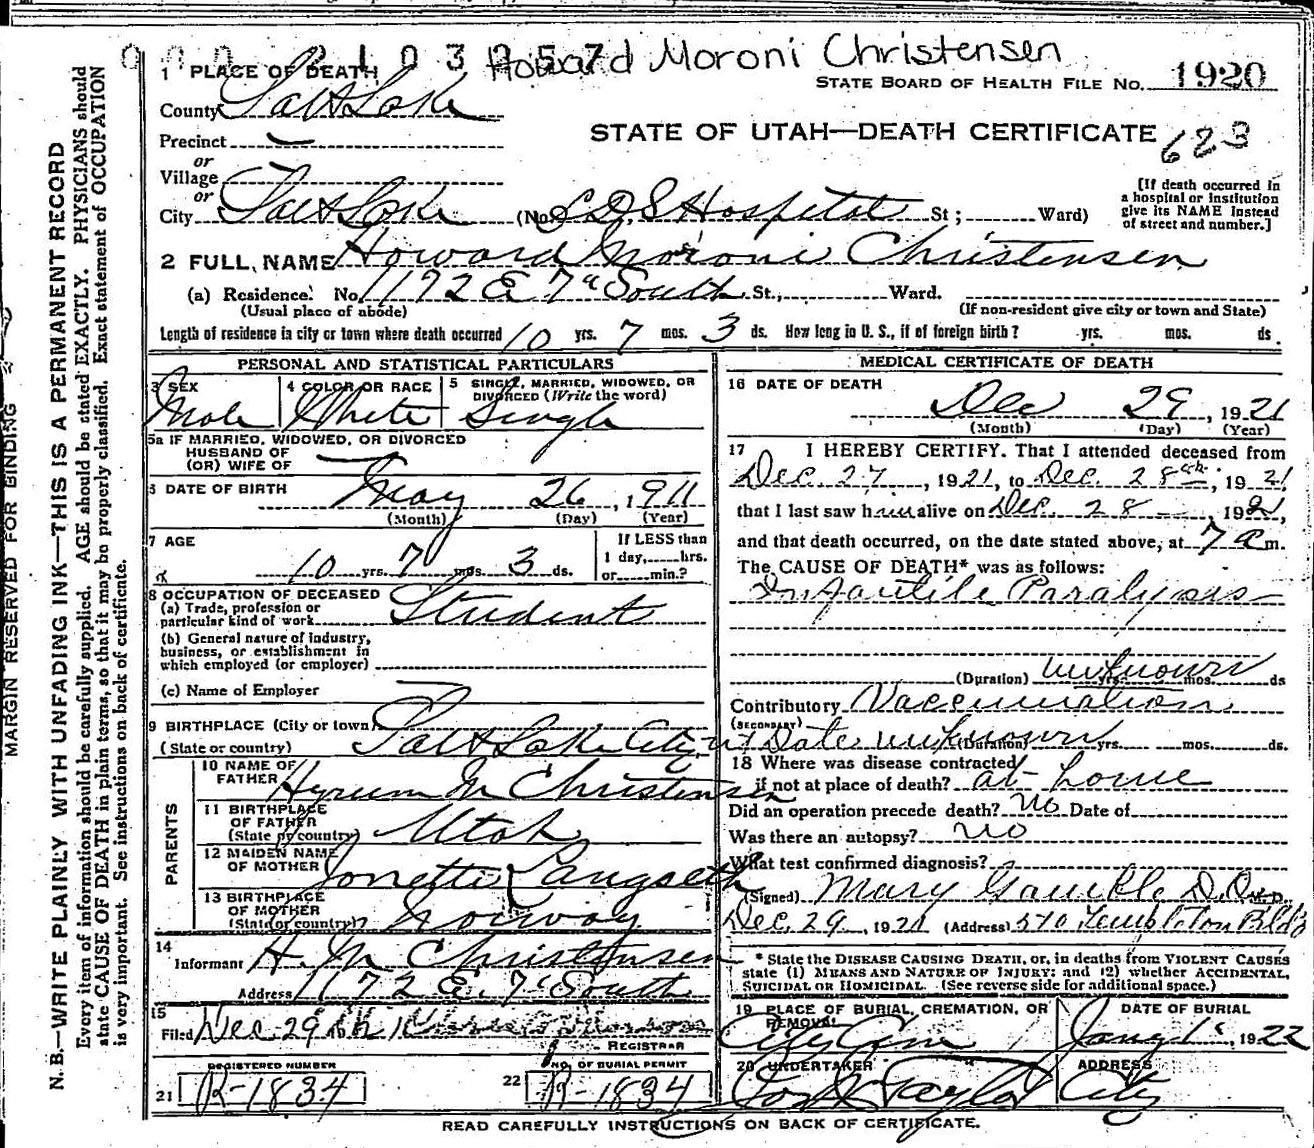 2103257 Howard Moroni Christensen
1 PLACE OF DEATH
STATE BOARD OF HEALTH FILE No. 1920
County Salt Lake
STATE OF UTAH—DEATH CERTIFICATE 623
Precinct
or
Village
or
City Salt Lake (No. L.D.S Hospital St; Ward)
[If death occurred in
a hospital or institution
give its NAME instead
of street and number.]
2 FULL NAME Howard Moroni Christensen
(a) Residence. No. 1172 E 7th South St., Ward.
(Usual place of abode) (If non-resident give city or town and State)
Length of residence in city or town where death occurred 10 yrs. 7 mos. 3 ds. How long in U. S., if of foreign birth? yrs. mos. ds.
PERSONAL AND STATISTICAL PARTICULARS
3 SEX Male
4 COLOR OR RACE White
5 SINGLE, MARRIED, WIDOWED, OR
DIVORCED (Write the word) Single
5a IF MARRIED, WIDOWED, OR DIVORCED
HUSBAND OF
(OR) WIFE OF
6 DATE OF BIRTH May 26, 1911
(Month) (Day) (Year)
7 AGE
10 yrs. 7 mos. 3 ds.
If LESS than
1 day, hrs.
or min.?
8 OCCUPATION OF DECEASED
(a) Trade, profession or
particular kind of work Student
(b) General nature of industry,
business, or establishment in
which employed (or employer)
(c) Name of Employer
9 BIRTHPLACE (City or town)
(State or country) Salt Lake City, ut
PARENTS
10 NAME OF
FATHER Hyrum M Christensen
11 BIRTHPLACE
OF FATHER
(State or country) Utah
12 MAIDEN NAME
OF MOTHER Jonette Langseth
13 BIRTHPLACE
OF MOTHER
(State or country) Norway
14
Informant H. M Christensen
Address 1172 E. 7th South
15
Filed Dec 29
REGISTRAR
REGISTERED NUMBER
21 R-1834
NO. OF BURIAL PERMIT
22 R-1834
MEDICAL CERTIFICATE OF DEATH
16 DATE OF DEATH
Dec 29, 1921
(Month) (Day) (Year)
17 I HEREBY CERTIFY. That I attended deceased from
Dec. 27, 1921, to Dec. 28th, 1921
that I last saw him alive on Dec. 28, 1921,
and that death occurred, on the date stated above, at 7 a m.
The CAUSE OF DEATH* was as follows:
Infantile Paralysis
(Duration) unknown yrs. mos. ds
Contributory Vaccination
(SECONDARY)
Date unknown (Duration) yrs. mos. ds.
18 Where was disease contracted
if not at place of death? at home
Did an operation precede death? No Date of
Was there an autopsy? No
What test confirmed diagnosis?
(Signed) Mary Gamble D.O. M.D.
Dec. 29, 1921 (Address) 510 Templeton Bld'g
* State the DISEASE CAUSING DEATH, or, in deaths from VIOLENT CAUSES
state (1) MEANS AND NATURE OF INJURY; and (2) whether ACCIDENTAL,
SUICIDAL OR HOMICIDAL. (See reverse side for additional space.)
19 PLACE OF BURIAL, CREMATION, OR
REMOVAL City Cem
DATE OF BURIAL
Jany 1, 1922
20 UNDERTAKER Taylor
ADDRESS
City
READ CAREFULLY INSTRUCTIONS ON BACK OF CERTIFICATE.
MARGIN RESERVED FOR BINDING
N. B.—WRITE PLAINLY WITH UNFADING INK—THIS IS A PERMANENT RECORD
Every item of information should be carefully supplied. AGE should be stated EXACTLY. PHYSICIANS should
state CAUSE OF DEATH in plain terms, so that it may be properly classified. Exact statement of OCCUPATION
is very important. See instructions on back of certificate.